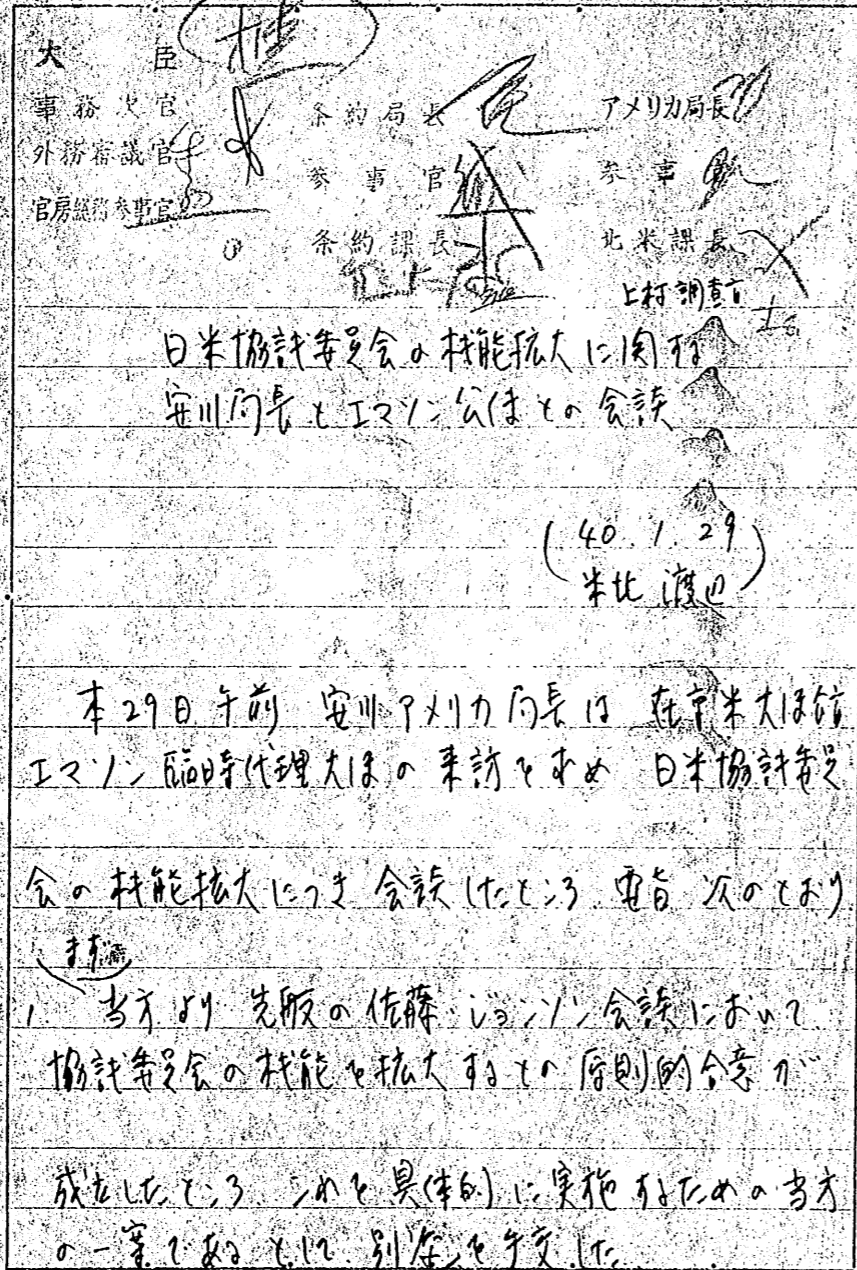 大臣
事務次官
外務審議官
官房総務参事官
条約局長
参事官
条約課長
アメリカ局長
参事
北米課長
上村調査官
日米協議委員会の機能拡大に関する
安川局長とエマソン公使との会談
(40.1.29
米北 渡辺)
本29日午前 安川アメリカ局長は 在京米大使館
エマソン臨時代理大使の来訪を求め 日米協議委員
会の機能拡大につき 会談したところ 要旨 次のとおり
まず
1 当方より 先般の佐藤・ジョンソン会談において
協議委員会の機能を拡大するとの原則的合意が
成立したところ これを具体的に実施するための当方
の一案であるとして 別添を手交した